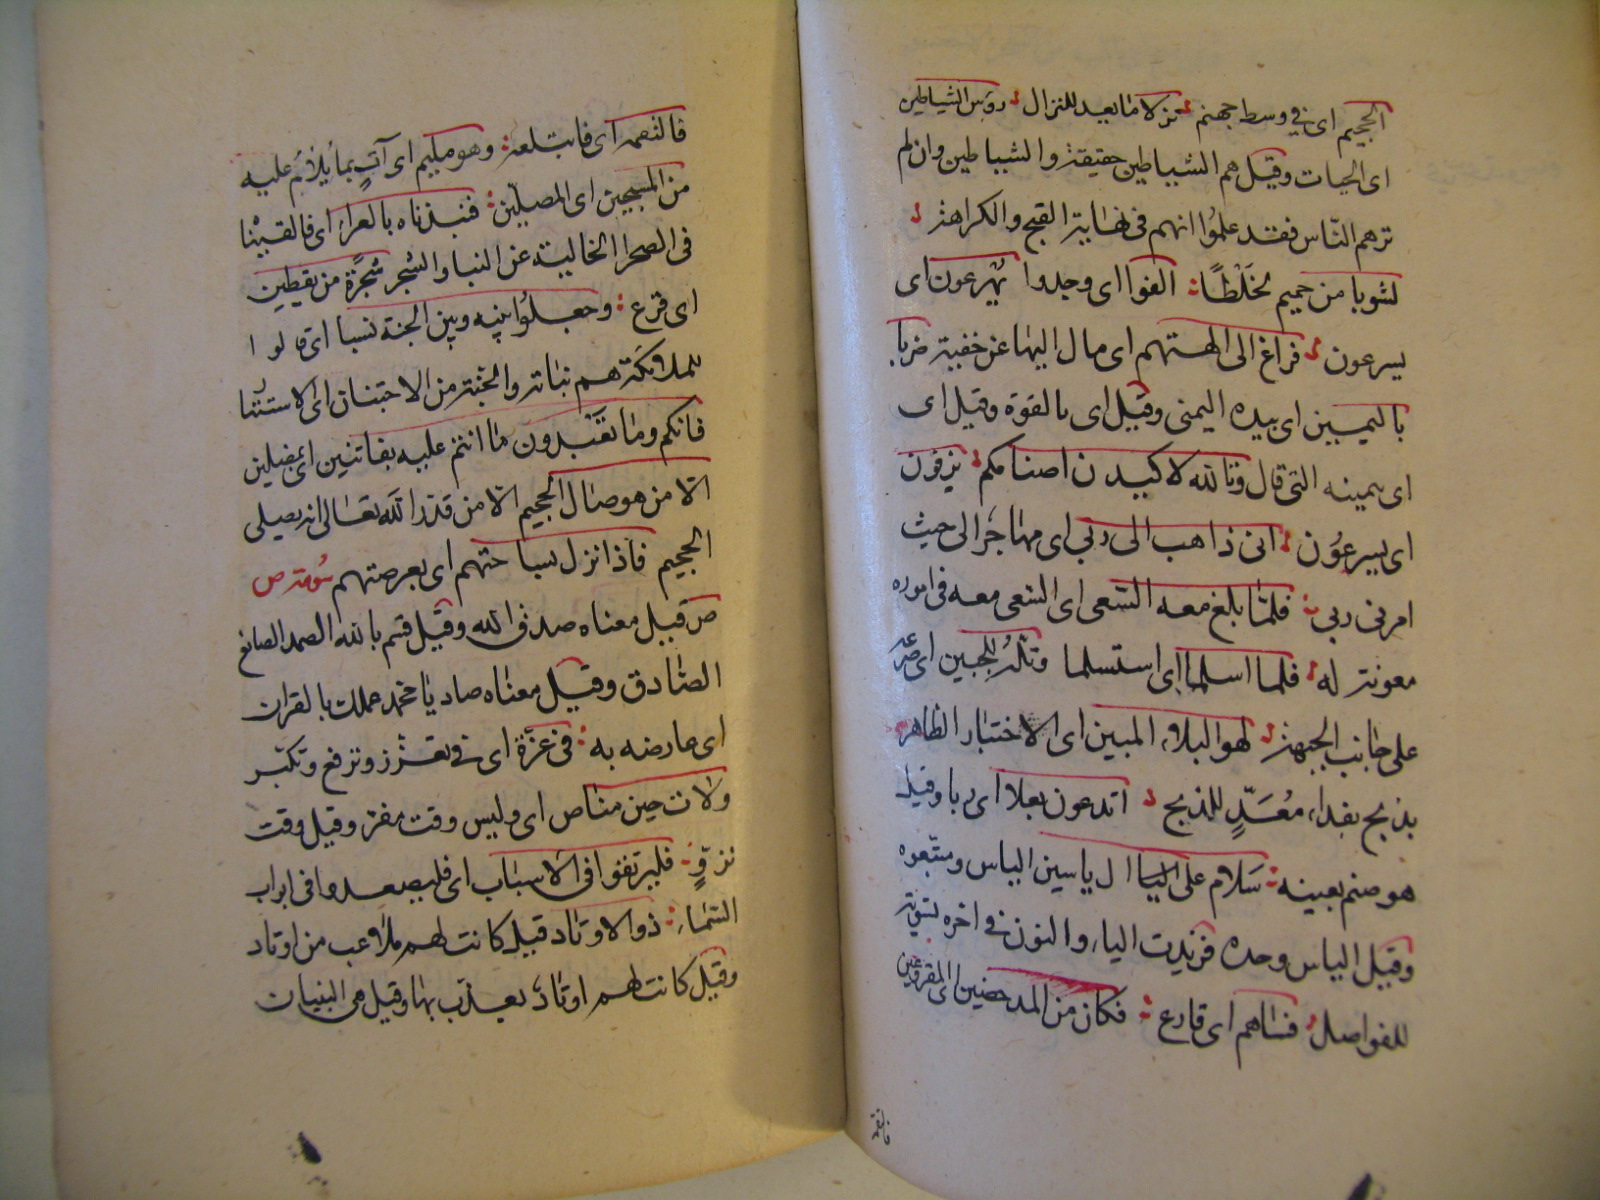 الجحيم اى فى وسط جهنم نزلا ما يعد للنزال رؤس الشياطين
اى الحيات وقيل هم الشياطين حقيقة والشياطين وان لم
ترهم الناس فقد علموا انهم فى نهاية القبح والكراهة
لشوبا من حميم مخلطا الفوا اى وجدوا يهرعون اى
يسرعون فراغ الى الهتهم اى مال اليها عن خفية ضربا
باليمين اى بيده اليمنى وقيل اى بالقوة وقيل اى
اى بيمينه التى قال وتالله لاكيدن اصنامكم يزفون
اى يسرعون انى ذاهب الى ربى اى مهاجر الى حيث
امرنى ربى فلما بلغ معه السعى اى السعى معه فى اموره
معونة له فلما اسلما اى استسلما وتله للجبين اى صرعه
على جانب الجبهة لهو البلاء المبين اى الاختبار الظاهر
بذبح بفداء معد للذبح اتدعون بعلا اى ربا وقيل
هو صنم بعينه سلام على ال ياسين الياس ومتبعوه
وقيل الياس وحده فزيدت الياء والنون فى اخره لتسوية
للفواصل فساهم اى قارع فكان من المدحضين اى المقروعين
فالتقمه
فالتقمه اى فابتلعه وهو مليم اى آت بما يلام عليه
من المسبحين اى المصلين فنبذناه بالعراء اى فالقيناه
فى الصحرا الخالية عن النبا والشجر شجرة من يقطين
اى قرع وجعلوا بينه وبين الجنة نسبا اى قالوا
للملائكة هم بناته والجنة من الاجتنان اى الاستتار
فانكم وما تعبدون ما انتم عليه بفاتنين اى بمضلين
الا من هو صال الجحيم الا من قدر الله تعالى انه يصلى
الجحيم فاذا نزل بساحتهم اى بعرصتهم سورة ص
ص قيل معناه صدق الله وقيل قسم بالله الصمد الصانع
الصادق وقيل معناه صاد يا محمد عملك بالقران
اى عارضه به فى عزة اى فى تعزز وترفع وتكبر
ولات حين مناص اى وليس وقت مفر وقيل وقت
نزو فليرتقوا فى الاسباب اى فليصعدوا فى ابواب
السماء ذو الاوتاد قيل كانت لهم ملاعب من اوتاد
وقيل كانت لهم اوتاد يعذب بها وقيل هى البنيان